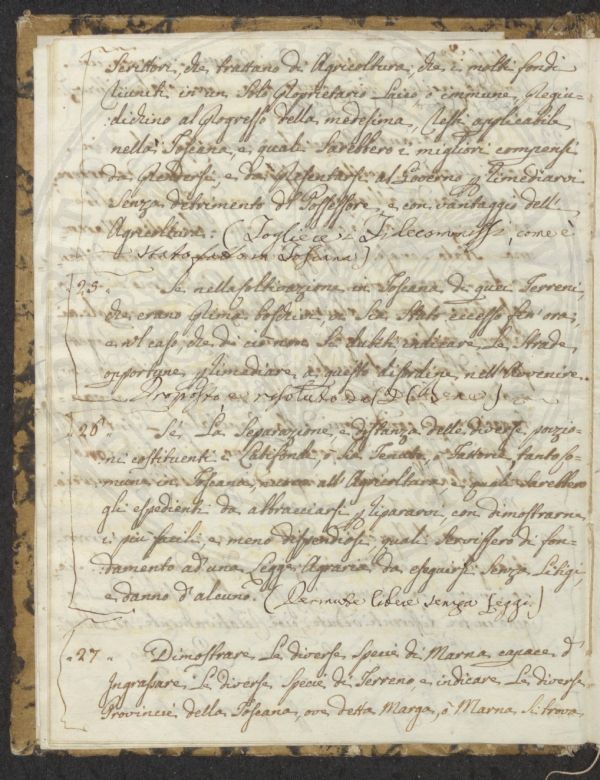 Scrittori, che trattano di Agricoltura, che i molti fondi
riuniti in un sol Proprietario Laico o immune, Pregiu-
dichino al Progresso della medesima, Tesi applicabile
nella Toscana, e quali sarebbero i migliori compensi
da prendersi, e da presentarsi al Governo p rimediarvi
senza detrimento del Possessore, e con vantaggio dell'
Agricoltura: (Togliere i Fidecommissi, come è
stato fatto in Toscana)
25 Se nella coltivazione in Toscana di quei Terreni,
che erano prima boschivi, vi sia stato eccesso fin' ora;
e nel caso, che di ciò non si dubiti indicare le strade
opportune p rimediare a questo disordine nell' avvenire.
Proposto, e risoluto
26 Se la separazione, e distanza delle diverse porzio-
ni costituenti i Latifondi, o sia Tenute, o Fattorie, tanto co-
mune in Toscana, nuoca all' Agricoltura, e quali sarebbero
gli espedienti da abbracciarsi p ripararvi, con dimostrarne
i più facili e meno dispendiosi, quali servissero di fon-
damento ad una Legge Agraria da eseguirsi senza Litigi,
e danno d' alcuno. (Permute libere senza Leggi)
27 Dimostrare le diverse specie di Marna capace d'
Ingrassare le diverse specie di Terreno, e indicare le diverse
Provincie della Toscana, ove detta Marga, o Marna si trova